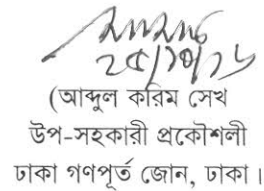 ২৫/১০/১৬
(আব্দুল করিম সেখ
উপ-সহকারী প্রকৌশলী
ঢাকা গণপূর্ত জোন, ঢাকা।